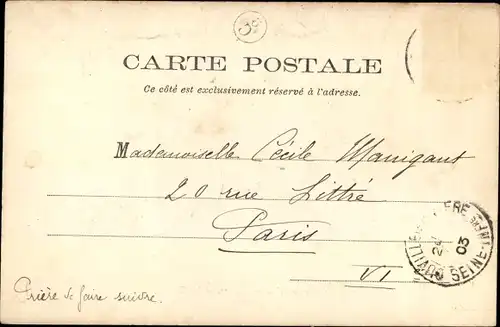 CARTE POSTALE
Ce côté est exclusivement réservé à l'adresse.
Mademoiselle Cécile Manigant
20 rue Littré
Paris
VI
Prière de faire suivre.
SEINE
03